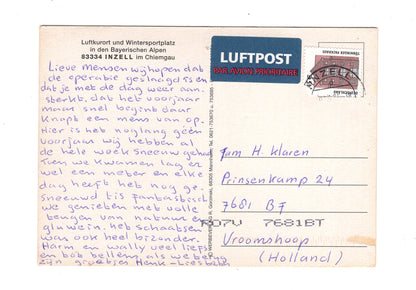 Luftkurort und Wintersportplatz
in den Bayerischen Alpen
83334 INZELL im Chiemgau
Lieve mensen wij hopen dat
de operatie geslaagd is en
dat je met de dag weer aan-
sterkt. dat het voorjaar
maar snel begint daar
knapt een mens van op.
Hier is het nog lang geen
voorjaar wij hebben al
de hele week sneeuw gehad
Toen we kwamen lag er
wel een meter en elke
dag heeft het nog ge-
sneeuwd 't is fantastisch
we genieten met volle
teugen van natuur en
gluwein. het schaatsen
was ook heel bizonder.
Harm en wally veel liefs
en bob bellens, als we terug
zijn groetjes Henk - Liesbeth
LUFTPOST
PAR AVION PRIORITAIRE
INZELL
Fam H. Klaren
Prinsenkamp 24
7681 BJ
7681BT
Vroomshoop
(Holland)